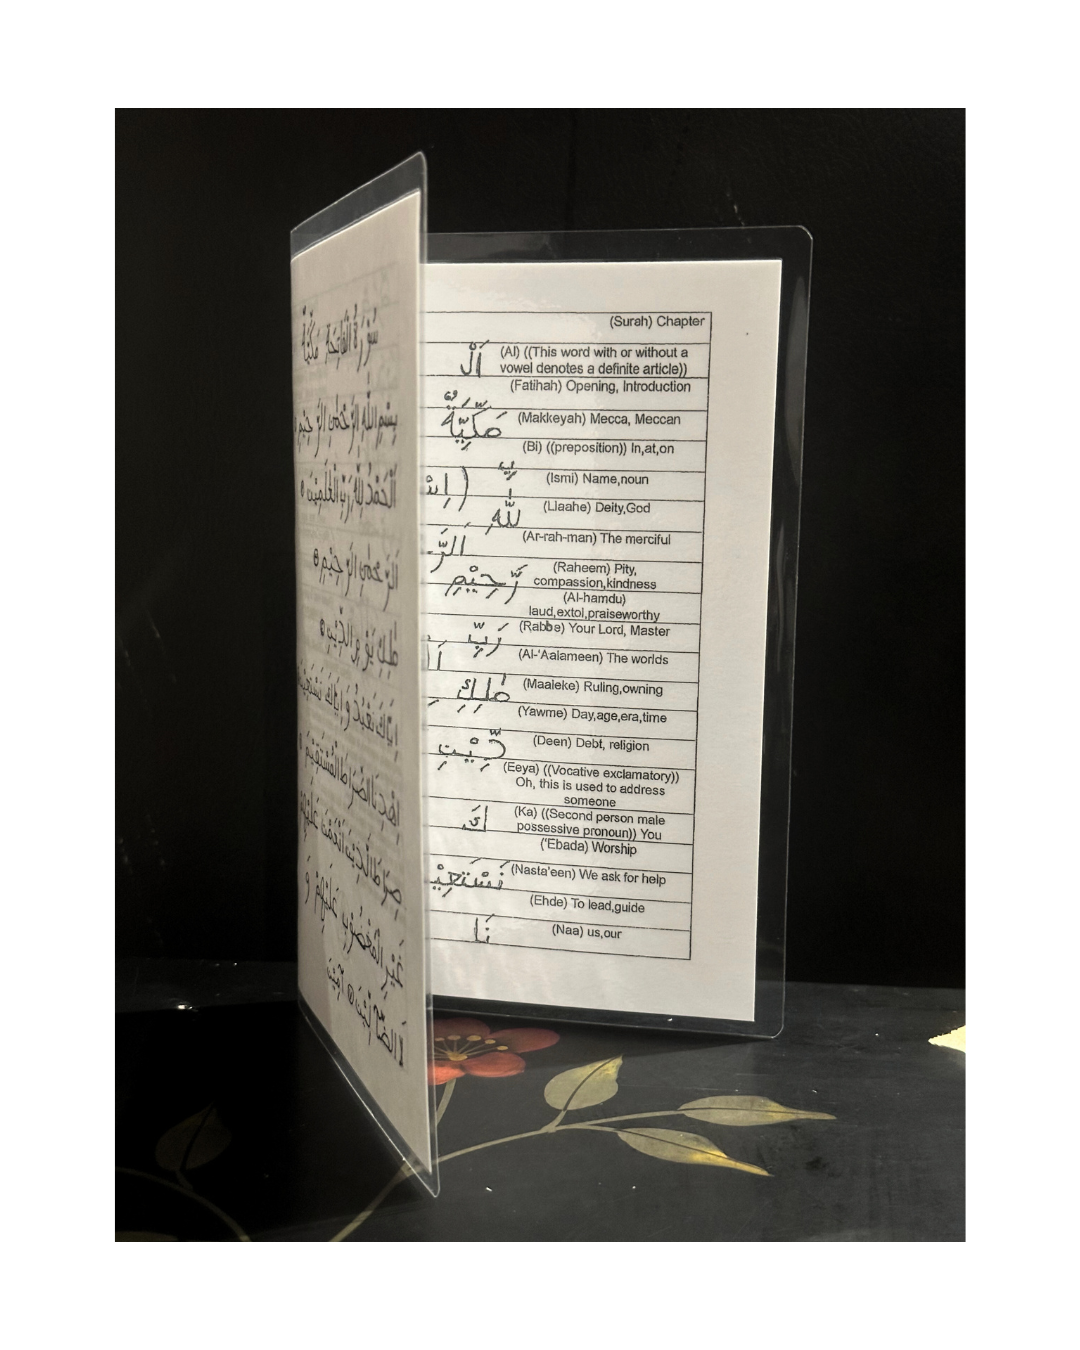 سُوْرَةُ الْفَاتِحَةِ مَكِّيَّةٌ
بِسْمِ اللهِ الرَّحْمٰنِ الرَّحِيْمِ
اَلْحَمْدُ لِلّٰهِ رَبِّ الْعٰلَمِيْنَ
الرَّحْمٰنِ الرَّحِيْمِ
مٰلِكِ يَوْمِ الدِّيْنِ
اِيَّاكَ نَعْبُدُ وَاِيَّاكَ نَسْتَعِيْنُ
اِهْدِنَا الصِّرَاطَ الْمُسْتَقِيْمَ
صِرَاطَ الَّذِيْنَ اَنْعَمْتَ عَلَيْهِمْ
غَيْرِ الْمَغْضُوْبِ عَلَيْهِمْ وَ
لَا الضَّآلِّيْنَ اٰمِيْنَ
(Surah) Chapter
اَلْ (Al) ((This word with or without a
vowel denotes a definite article))
(Fatihah) Opening, Introduction
مَكِّيَّةٌ (Makkeyah) Mecca, Meccan
(Bi) ((preposition)) In,at,on
بِ (Ismi) Name,noun
لِلّٰهِ (Llaahe) Deity,God
(Ar-rah-man) The merciful
رَّحِيْمِ (Raheem) Pity,
compassion,kindness
(Al-hamdu)
laud,extol,praiseworthy
رَبِّ (Rabbe) Your Lord, Master
(Al-'Aalameen) The worlds
مٰلِكِ (Maaleke) Ruling,owning
(Yawme) Day,age,era,time
دِّيْنِ (Deen) Debt, religion
(Eeya) ((Vocative exclamatory))
Oh, this is used to address
someone
كَ (Ka) ((Second person male
possessive pronoun)) You
('Ebada) Worship
(Nasta'een) We ask for help
(Ehde) To lead,guide
نَا (Naa) us,our